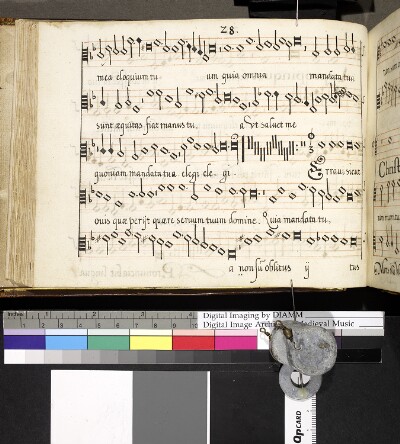 28.
mea eloquium tu um quia omnia mandata tua
sunt æquitas fiat manus tu, a Vt saluet me
quoniam mandata tua elegi ele gi Erraui sicut
ouis quæ perijt quære seruum tuum domine. Quia mandata tu,
a non su oblitus ij tus
Digital Imaging by DIAMM
Digital Image Archive of Medieval Music